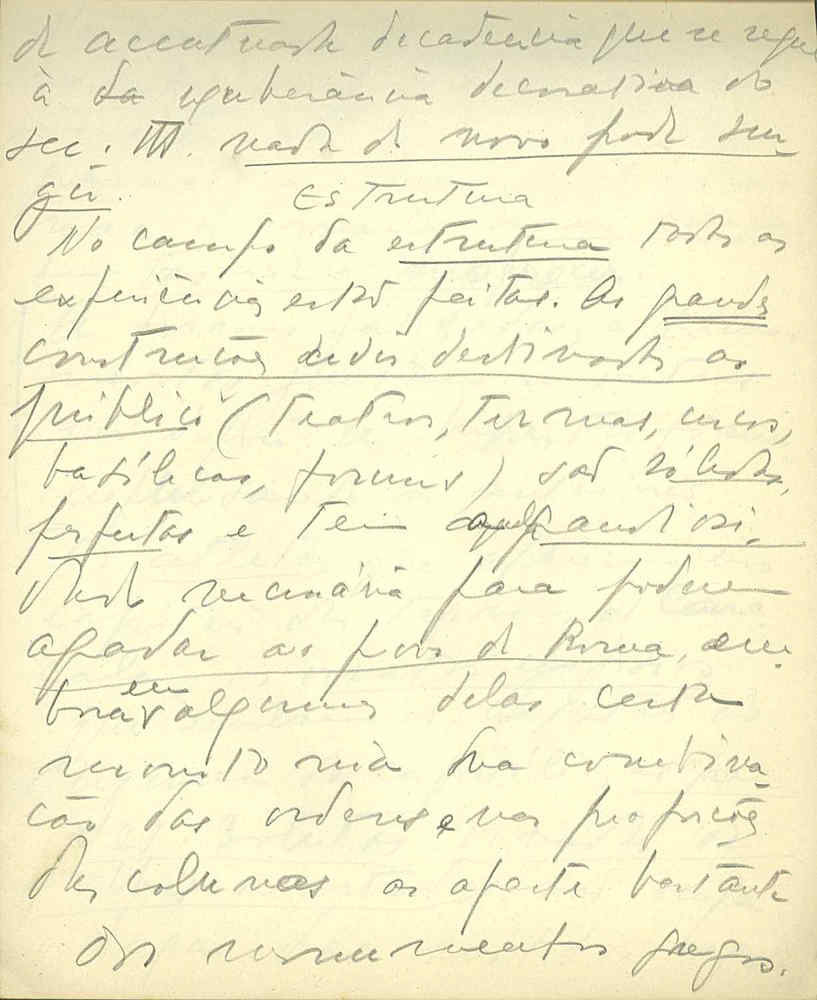 de accentuada decadencia que se segue
à da exuberância decorativa do
sec. III. nada de novo pode sur-
gir.
Estrutura
No campo da estrutura todas as
experiências estão feitas. As grandes
construções destinadas ao
público (Teatros, Termas, circos,
basílicas, foruns) são sólidas,
perfeitas e Tem aquela grandiosi-
dade necessária para poderem
agradar ao povo de Roma, em-
bora em algumas delas certa
monotonia na combina-
ção das ordens e nas proporções
das colunas as afaste bastante
dos monumentos gregos.